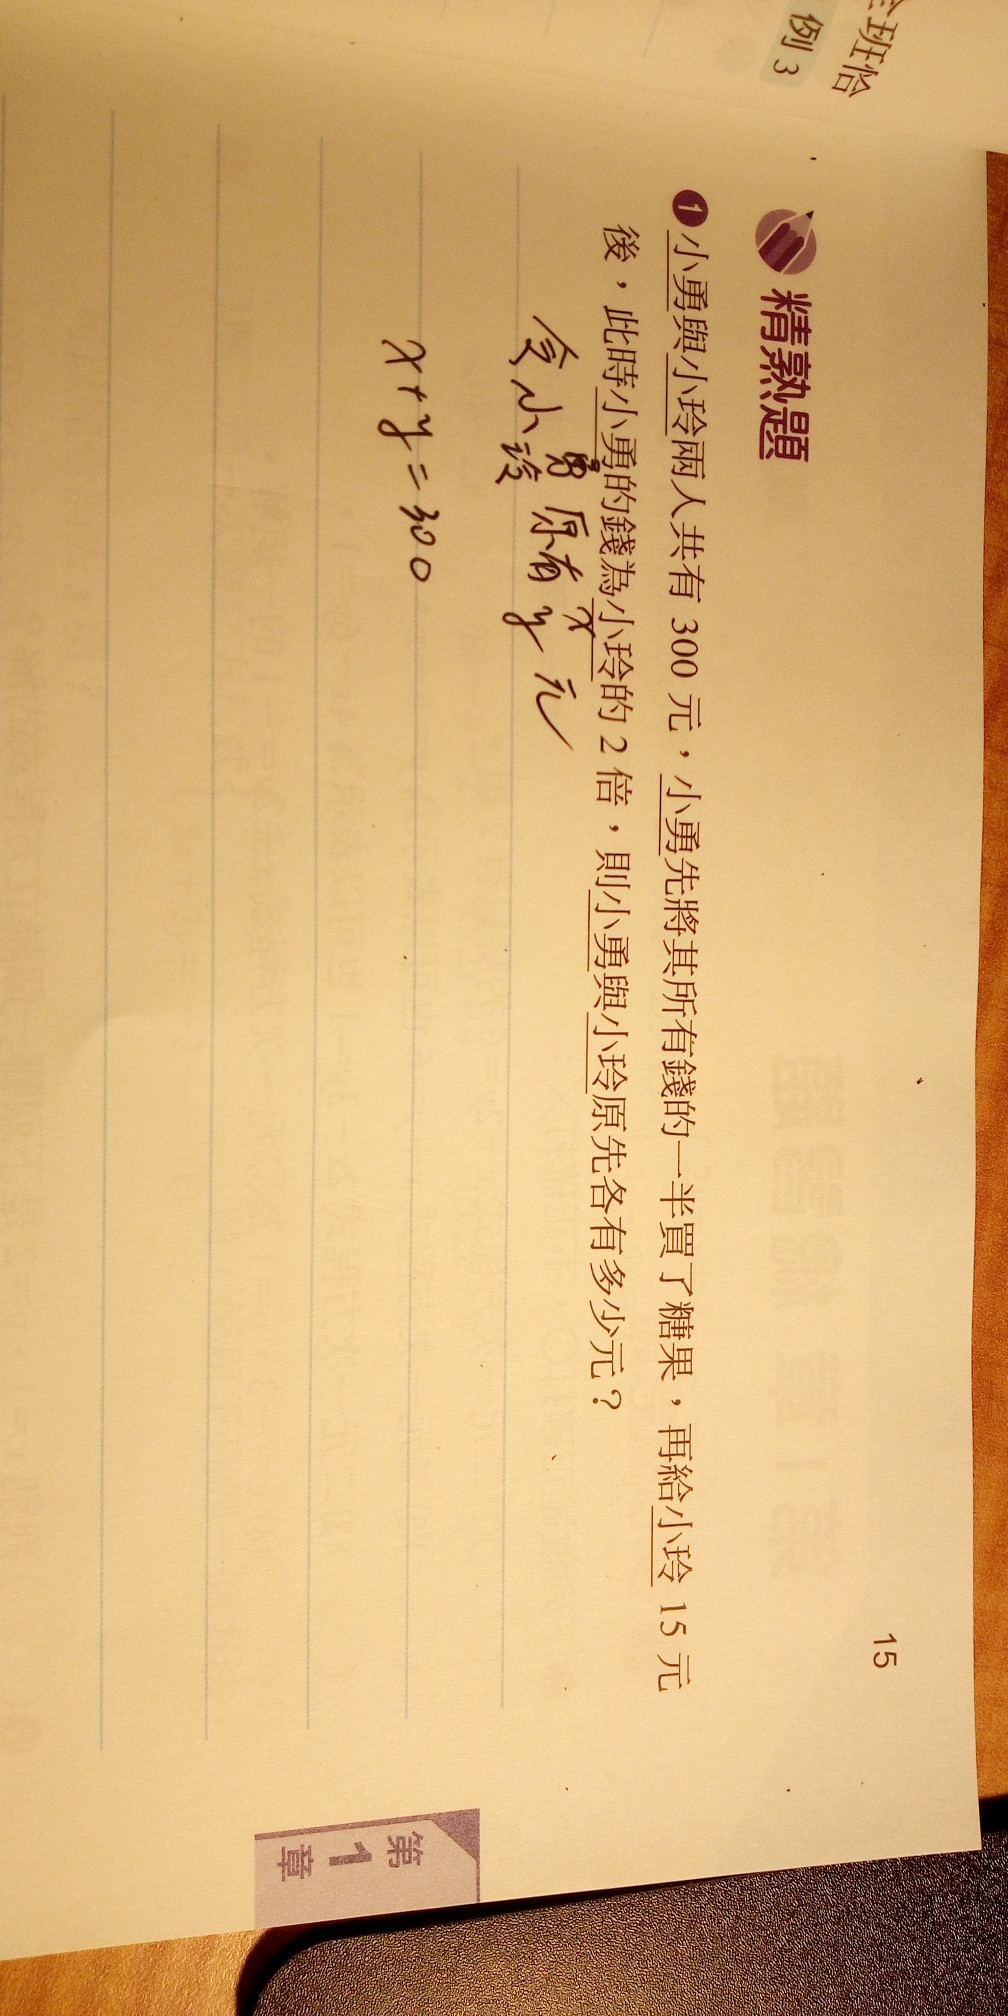 全班恰
例 3
15
精熟題
1 小勇與小玲兩人共有 300 元，小勇先將其所有錢的一半買了糖果，再給小玲 15 元
後，此時小勇的錢為小玲的 2 倍，則小勇與小玲原先各有多少元？
令小勇原有 x 元
玲 y
x+y=300
第1章